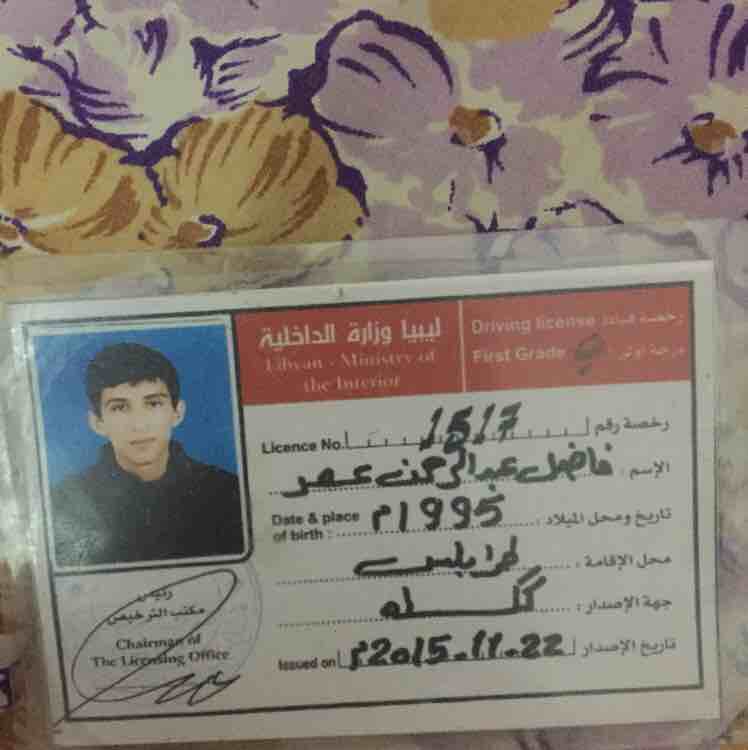 ليبيا وزارة الداخلية
Libyan - Ministry of
the Interior
Driving license رخصة قيادة
First Grade درجة أولى
Licence No. 1517 رخصة رقم
الإسم : فاضل عبدالرحمن عمر
Date & place of birth : 1995م تاريخ ومحل الميلاد :
محل الإقامة : طرابلس
جهة الإصدار : ككله
Issued on 2015.11.22م تاريخ الإصدار
رئيس
مكتب الترخيص
Chairman of
The Licensing Office